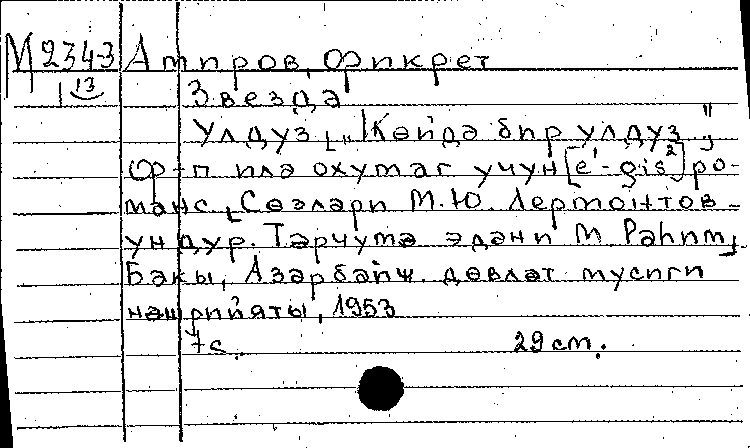 М 2343 Амиров, Фикрет
1 13
Звезда
Улдуз [„Көйдә бир улдуз”
Ф-п илә охумаг учун [e¹-gis²] ро-
манс [Сөзләри М.Ю. Лермонтов-
ундур. Тәрчумә эдәни М Рәһим].
Бакы, Азәрбайҹ. дөвләт мусиги
нәшрийяты, 1953
7с. 29 см.